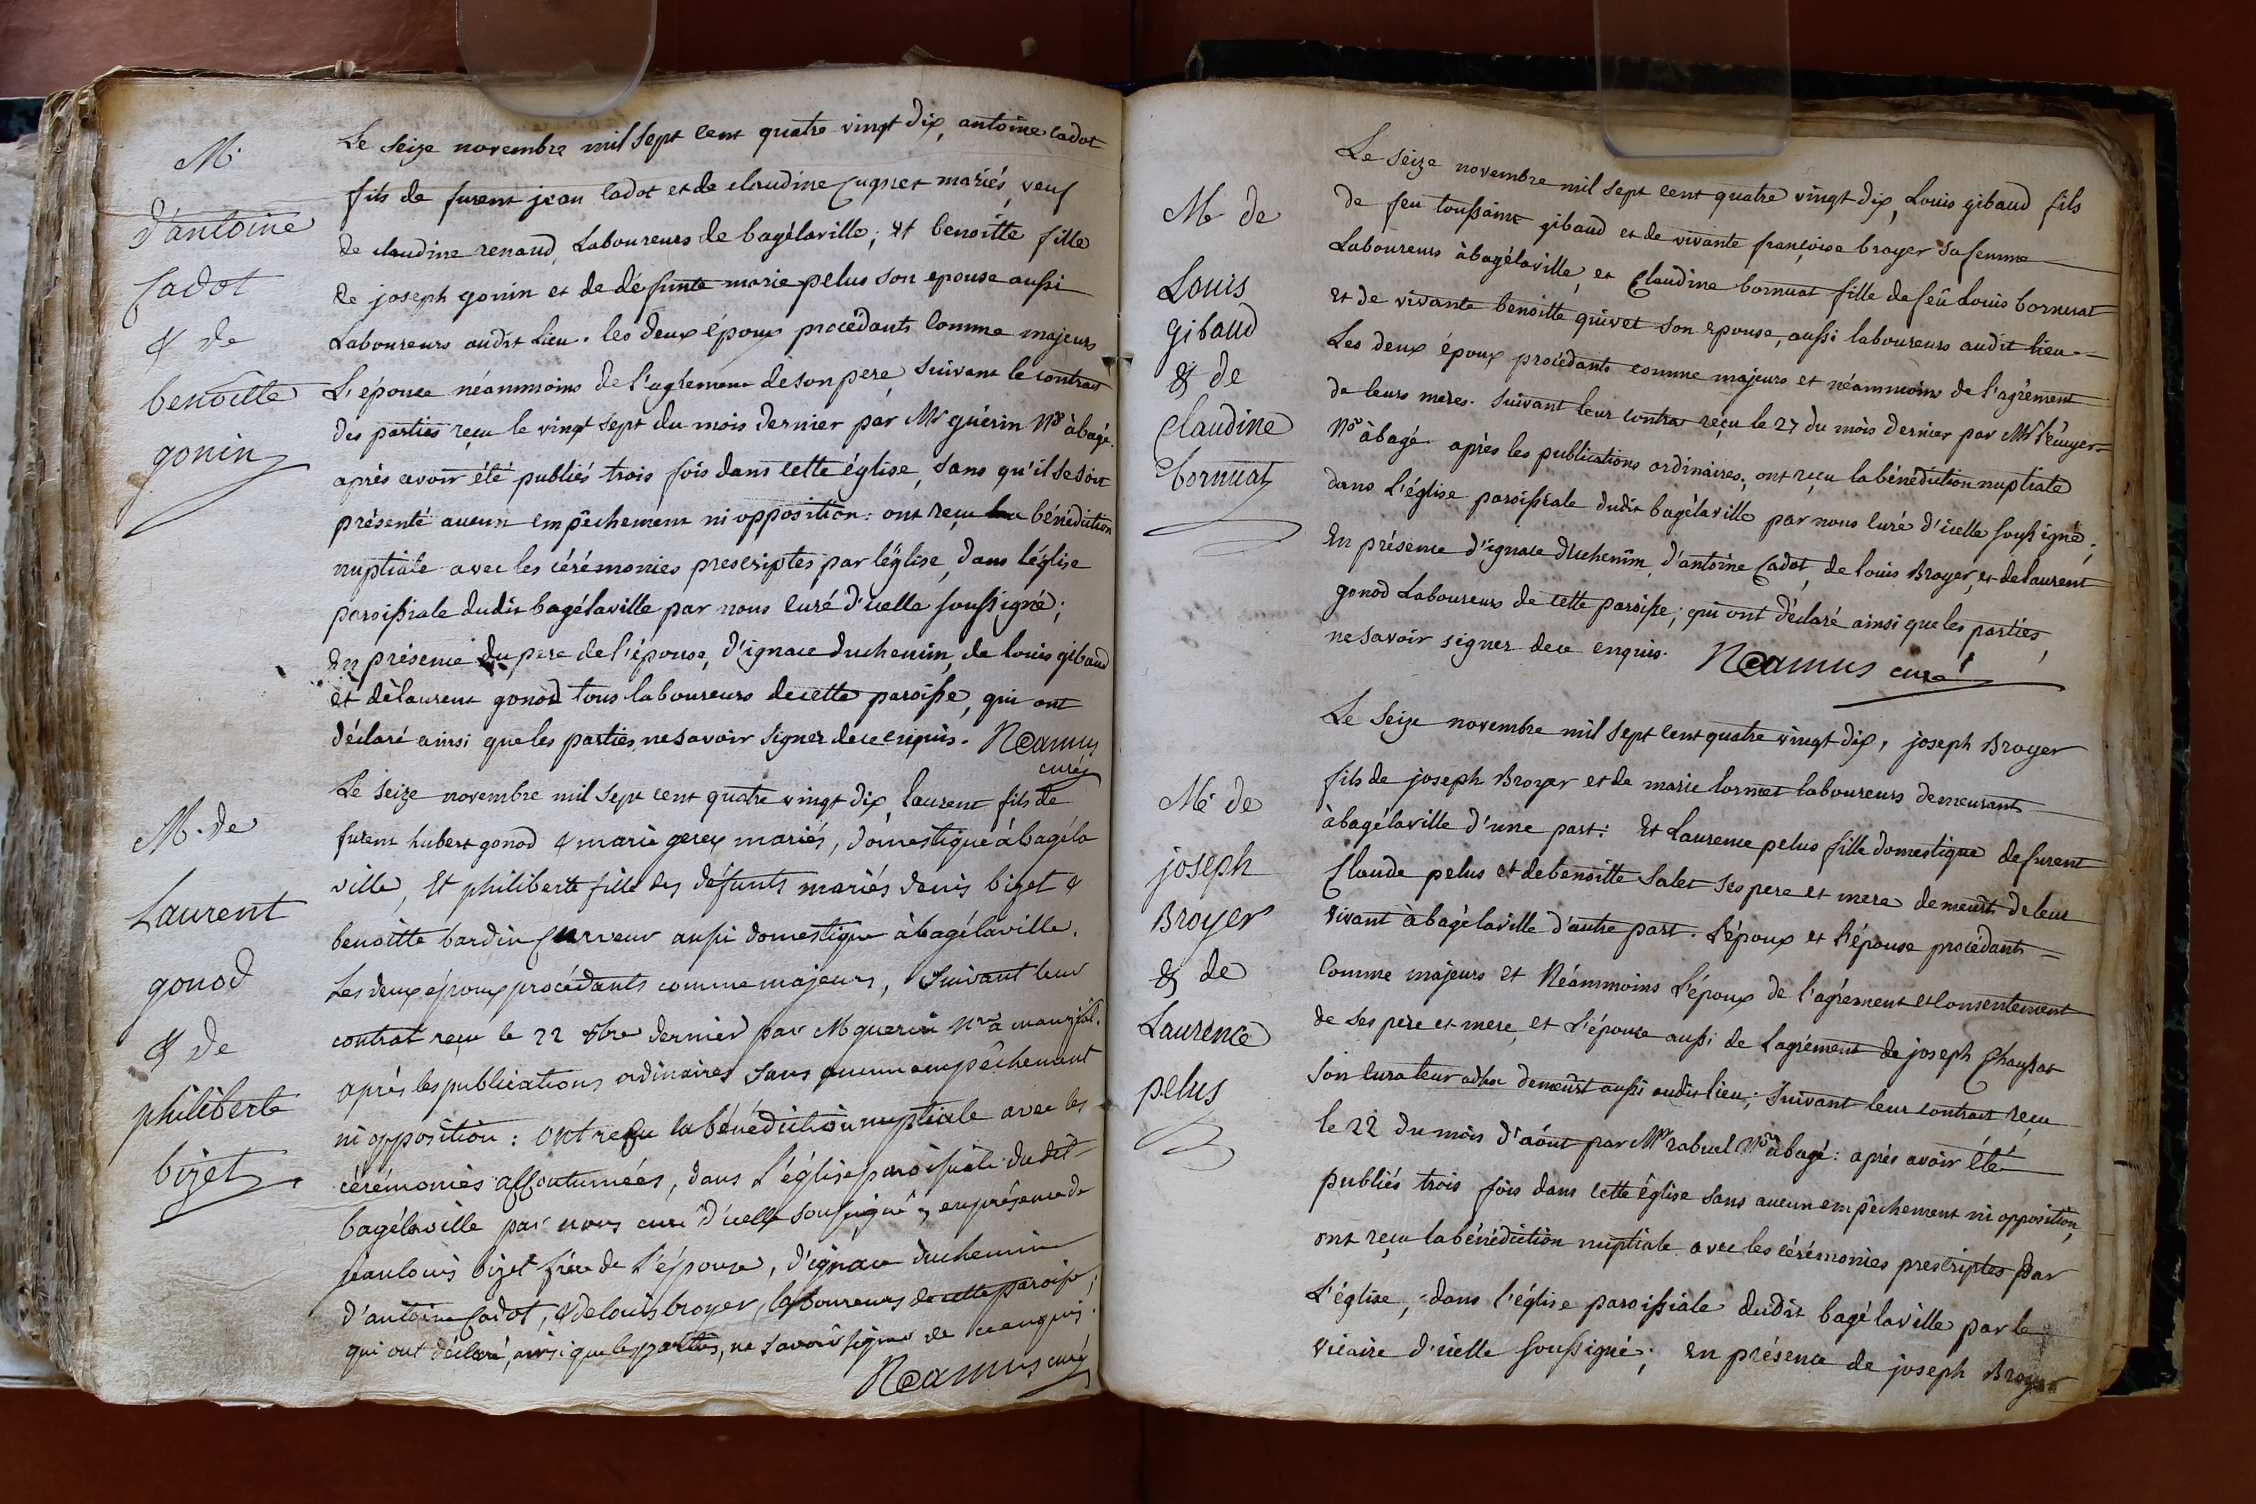 M.
d'antoine
Cadot
& de
benoitte
gonin
Le seize novembre mil sept cent quatre vingt dix, antoine cadot
fils de furent jean cadot et de claudine Cugnet mariés, veuf
de claudine renaud, Laboureurs de bagélaville; et benoitte fille
de joseph gonin et de défunte marie pelus son epouse aussi
Laboureurs audit Lieu. les deux époux procédants comme majeurs
L'épouse néammoins de l'agrément de son pere, suivant le contrat
des parties reçu le vingt sept du mois dernier par Mr guérin Nre à bagé.
après avoir été publiés trois fois dans cette église, sans qu'il se soit
présenté aucun empêchement ni opposition: ont reçu la bénédiction
nuptiale avec les cérémonies prescriptes par léglise, dans léglise
paroissiale dudit bagélaville par nous curé d'icelle soussigné;
En présence du pere de l'épouse, d'ignace duchemin, de louis gibaud
et de laurent gonod tous laboureurs de cette paroisse, qui ont
déclaré ainsi que les parties ne savoir signer de ce enquis. Neamus
curé
M. de
Laurent
gonod
& de
philiberte
bizet
Le seize novembre mil sept cent quatre vingt dix, laurent fils de
furent hubert gonod & marie gerey mariés, domestique à bagéla
ville, Et philiberte fille des défunts mariés denis bizet &
benoitte bardin aussi domestique à bagélaville.
Les deux époux procédants comme majeurs, suivant leur
contrat reçu le 22 8bre dernier par M guerin Nre à
après les publications ordinaires sans aucun empêchement
ni opposition: ont reçu la bénédiction nuptiale avec les
cérémonies accoutumées, dans l'église paroissiale du dit
bagélaville par nous curé d'icelle soussigné, en présence de
jean louis bizet frère de l'épouse, d'ignace duchemin
d'antoine Cadot, & de louis broyer, laboureurs de cette paroisse;
qui ont déclaré, ainsi que les parties, ne savoir signer de ce enquis.
Neamus curé
M. de
Louis
gibaud
& de
Claudine
bornuat
Le seize novembre mil sept cent quatre vingt dix, Louis gibaud fils
de feu toussaint gibaud et de vivante françoise broyer sa femme
Laboureurs à bagélaville, et Claudine bornuat fille de feû Louis bornuat
et de vivante benoitte quivet son epouse, aussi laboureurs audit lieu
Les deux époux procédants comme majeurs et néammoins de l'agrément
de leurs meres. suivant leur contrat reçu le 27 du mois dernier par Mr
Nre à bagé après les publications ordinaires, ont reçu la bénédiction nuptiale
dans l'église paroissiale dudit bagélaville par nous curé d'icelle soussigné;
En présence d'ignace duchemin, d'antoine Cadot, de louis Broyer, et de laurent
gonod Laboureurs de cette paroisse; qui ont déclaré ainsi que les parties,
ne savoir signer de ce enquis. Neamus curé
M. de
joseph
Broyer
& de
Laurence
pelus
Le Seize novembre mil sept cent quatre vingt dix, joseph Broyer
fils de joseph Broyer et de marie lornet laboureurs demeurants
à bagélaville d'une part: Et Laurence pelus fille domestique de furent
Claude pelus et de benoitte Salet ses pere et mere demeurts de leur
vivant à bagélaville d'autre part. L'époux et l'épouse procédants
Comme majeurs et Néammoins l'époux de l'agrément et consentement
de ses pere et mere, et L'épouse aussi de Lagrément de joseph Chaussat
son curateur adhoc demeurt aussi audit lieu; suivant leur contrat reçu
le 22 du mois d'aout par Mr rabuel Nre à bagé: aprés avoir été
publiés trois fois dans cette église sans aucun empêchement ni opposition,
ont reçu la bénédiction nuptiale avec les cérémonies prescriptes par
L'église, dans l'église paroissiale dudit bagélaville par le
vicaire d'icelle soussigné; En présence de joseph Broyer